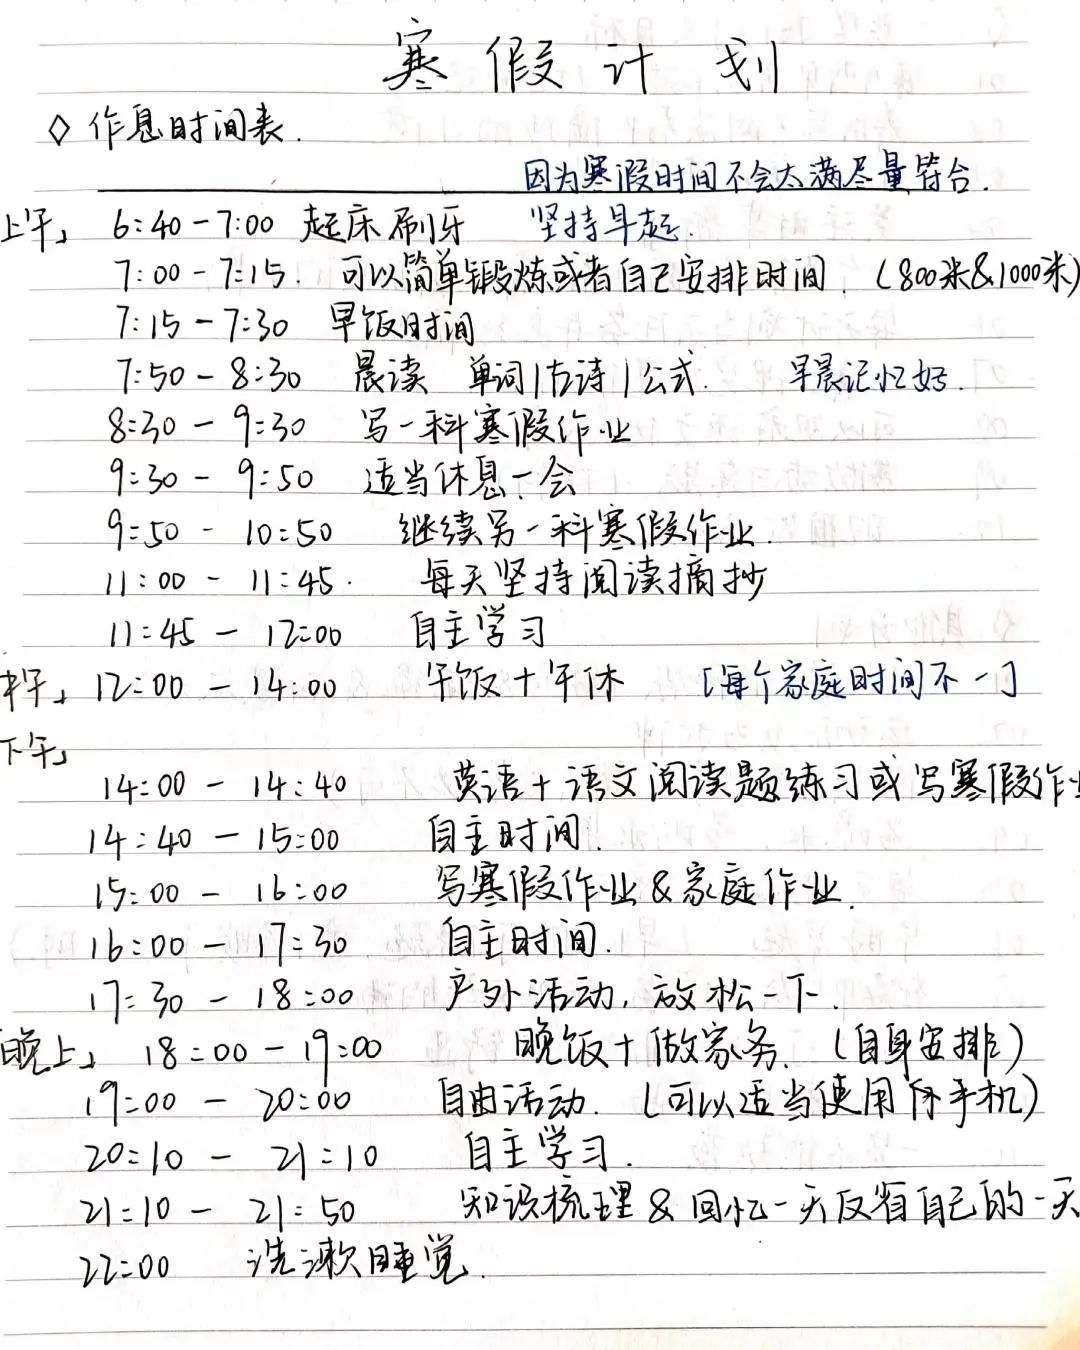 寒假计划
◇ 作息时间表.
因为寒假时间不会太满尽量符合.
上午」 6:40-7:00 起床刷牙 坚持早起.
7:00-7:15. 可以简单锻炼或者自己安排时间.（800米&1000米)
7:15-7:30 早饭时间
7:50-8:30 晨读 单词/古诗/公式. 早晨记忆好.
8:30-9:30 写一科寒假作业
9:30-9:50 适当休息一会
9:50-10:50 继续另一科寒假作业.
11:00-11:45. 每天坚持阅读摘抄
11:45-12:00 自主学习
中午」 12:00-14:00 午饭+午休 [每个家庭时间不一]
下午」
14:00-14:40 英语+语文阅读题练习或写寒假作业
14:40-15:00 自主时间.
15:00-16:00 写寒假作业&家庭作业.
16:00-17:30 自主时间.
17:30-18:00 户外活动,放松一下.
晚上」 18:00-19:00 晚饭+做家务.（自身安排）
19:00-20:00 自由活动.（可以适当使用手机）
20:10-21:10 自主学习.
21:10-21:50 知识梳理&回忆一天反省自己的一天
22:00 洗漱睡觉.